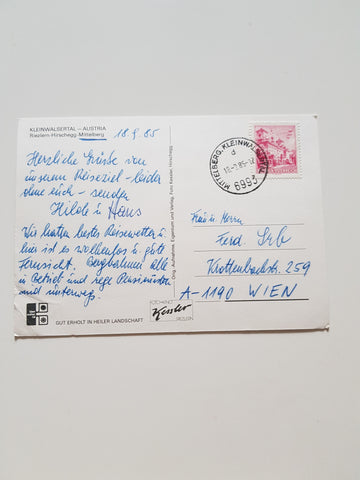 KLEINWALSERTAL – AUSTRIA
Riezlern-Hirschegg-Mittelberg
18.9.85
Herzliche Grüße von
unserem Reiseziel – leider
ohne euch – senden
Hilde u Hans
Wir hatten bestes Reisewetter u.
hier ist es wolkenlos u gute
Fernsicht. Bergbahnen alle
in Betrieb und rege
und unterwegs.
GUT ERHOLT IN HEILER LANDSCHAFT
Orig.-Aufnahme, Eigentum und Verlag, Foto Kessler, Hirschegg
FOTOHAUS
Kessler
RIEZLERN
MITTELBERG, KLEINWALSERTAL
6993
Frau u Herrn
Ferd. Srb
Krottenbachstr. 259
A-1190 WIEN